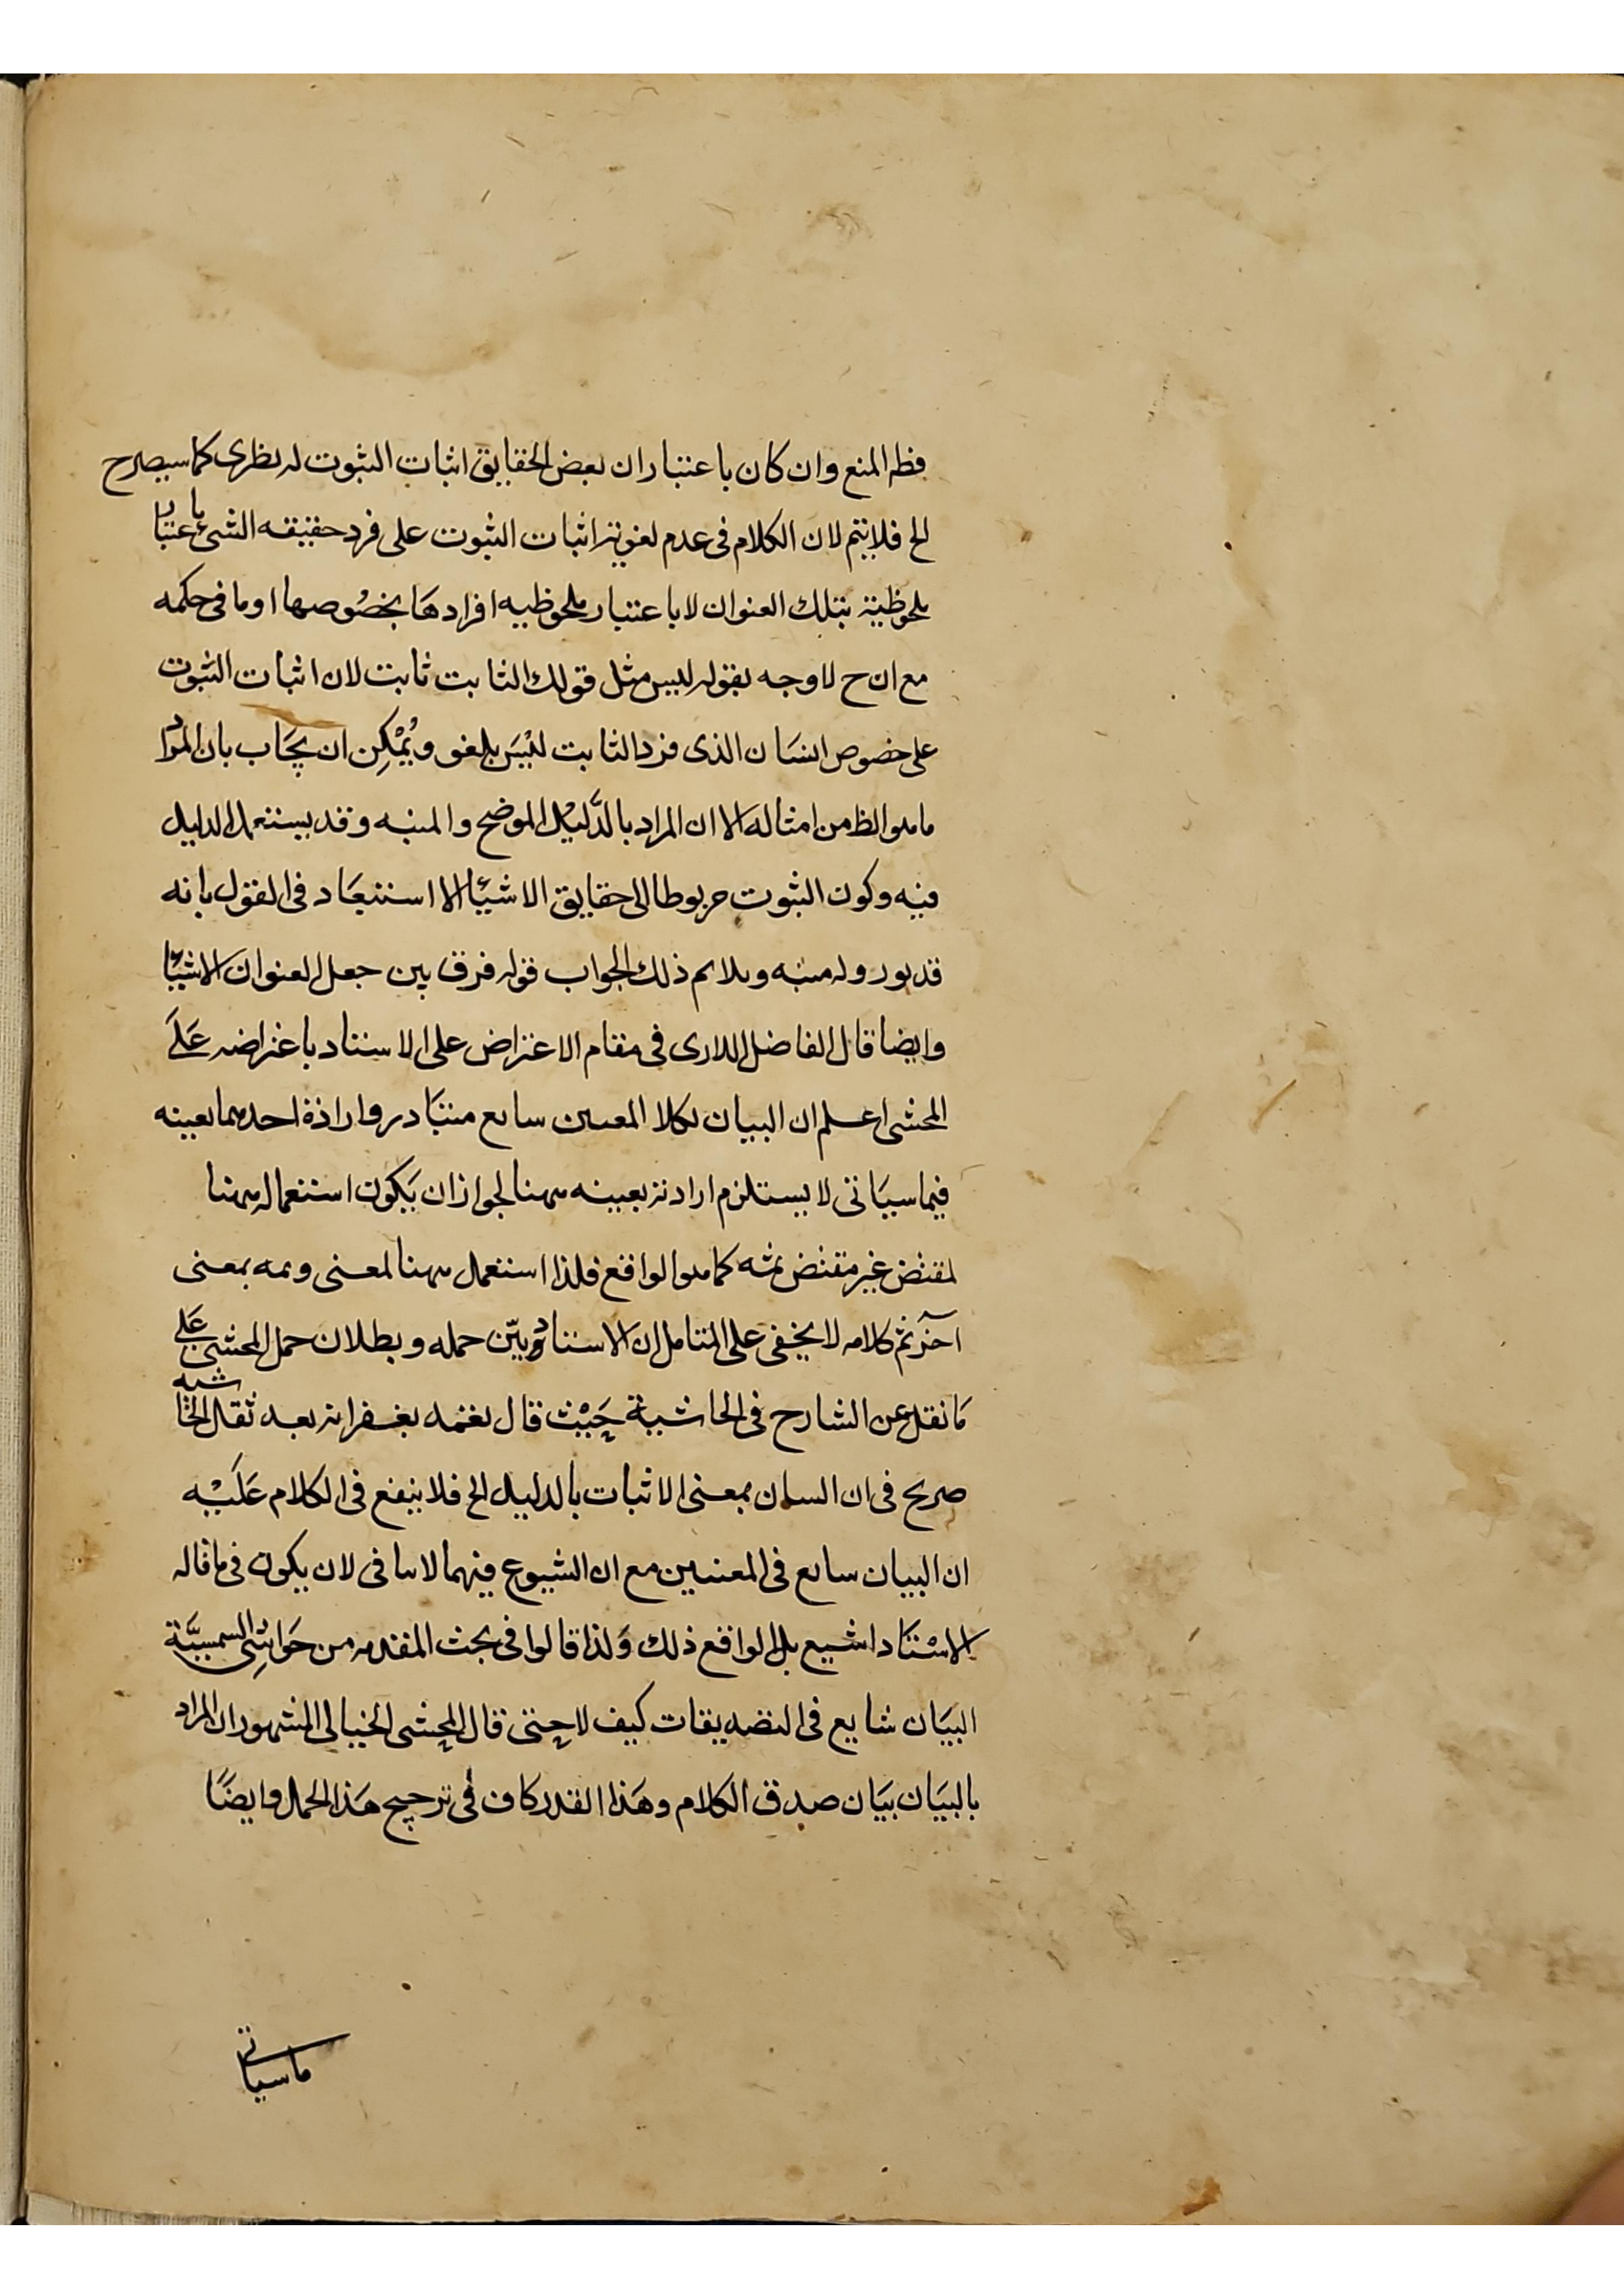 فظه المنع وان كان باعتباران بعض الحقايق اثبات الثبوت له نظرى كما سيصرح
الخ فلايتم لان الكلام فى عدم لغوية اثبات الثبوت على فرد حقيقه الشئ باعتبار
ملحوظية بتلك العنوان لا باعتبار ملحوظيه افرادها بخصوصها او ما فى حكمه
مع ان ح لا وجه بقوله ليس مثل قولك الثابت ثابت لان اثبات الثبوت
على خصوص انسان الذى فرد الثابت ليس بلغو ويمكن ان يجاب بان المراد
ما هو الظ من امثاله الا ان المراد بالدليل الموضح والمنبه وقد يستعمل الدليل
فيه وكون الثبوت مربوطا الى حقايق الاشيئا لا استبعاد فى القول بانه
قد يورد له منبه ويلايم ذلك الجواب قوله فرق بين جعل العنوان الاشيئا
وايضا قال الفاضل اللارى فى مقام الاعتراض على الاستاد باعتراضه على
المحشى اعلم ان البيان لكلا المعنيين سايع متبادر وارادة احدهما بعينه
فيما سيأتى لا يستلزم ارادته بعينه ههنا لجواز ان يكون استعماله ههنا
لمقتض غير مقتض ثمه كما هو الواقع فلذا استعمل ههنا لمعنى وثمه بمعنى
آخر تم كلامه لا يخفى على المتامل ان الاستاد بين حمله وبطلان حمل المحشى على
ما نقل عن الشارح فى الحاشية حيث قال تغمده بغفرانه بعد نقل الحاشيه
صريح فى ان البيان بمعنى الاثبات بالدليل الخ فلا ينفع فى الكلام عليه
ان البيان سايع فى المعنيين مع ان الشيوع فيهما لا ينافى لان يكون فى ما قاله
الاستاد اشيع بل الواقع ذلك ولذا قالوا فى بحث المقدمه من حواشى الشمسية
البيان شايع فى التصديقات كيف لا حتى قال المحشى الخيالى المشهور ان المراد
بالبيان بيان صدق الكلام وهذا القدر كاف فى ترجيح هذا الحمل وايضا
ما سياتى